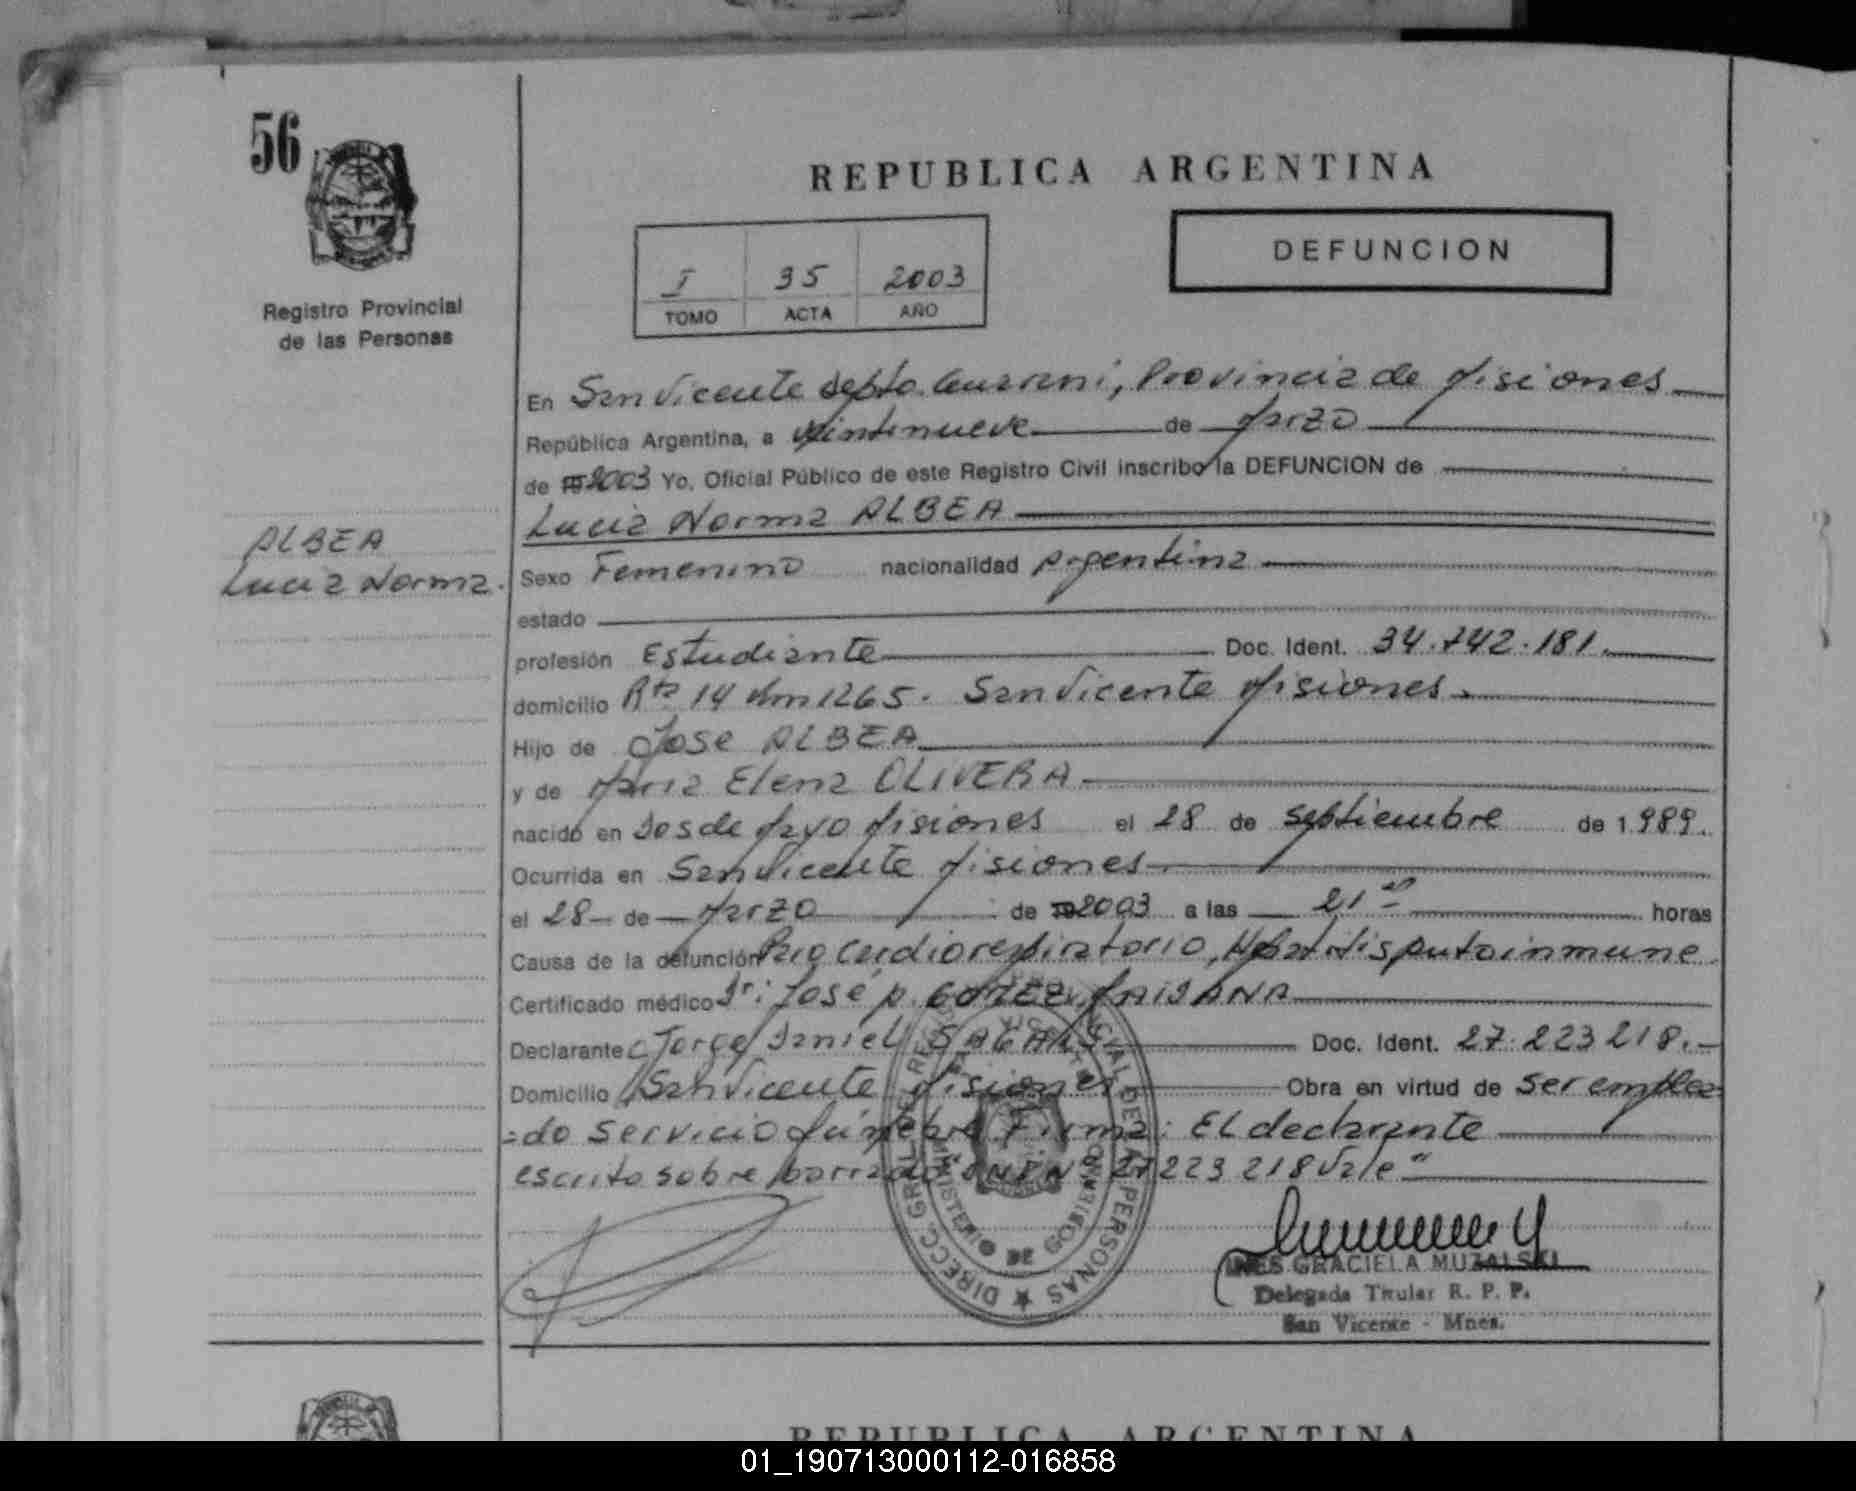 56
REPUBLICA ARGENTINA
DEFUNCION
I 35 2003
TOMO ACTA AÑO
Registro Provincial
de las Personas
En San Vicente Depto. Guarani, Provincia de Misiones
República Argentina, a veintinueve de Marzo
de 2003 Yo, Oficial Público de este Registro Civil inscribo la DEFUNCION de
Lucia Norma ALBEA
ALBEA
Lucia Norma.
Sexo Femenino nacionalidad Argentina
estado
profesión Estudiante Doc. Ident. 34.742.181.
domicilio Rta 14 Km 1265. San Vicente Misiones.
Hijo de Jose ALBEA
y de Maria Elena OLIVERA
nacido en Dos de Mayo Misiones el 28 de Septiembre de 1989.
Ocurrida en San Vicente Misiones
el 28 de Marzo de 2003 a las 21 horas
Causa de la defunción Paro Cardiorespiratorio, Hepatitis Autoinmune
Certificado médico Dr: José A.
Declarante Jorge Daniel Doc. Ident. 27.223.218.
Domicilio San Vicente Misiones Obra en virtud de ser emplea
=do Servicio Fúnebre Firma: El declarante
escrito sobre borrado "DNI Nº 27223218 Vale"
DIRECC. GRAL. DEL REG. PROVINCIAL DE LAS PERSONAS
MINISTERIO DE GOBIERNO
INES GRACIELA MUZALSKI
Delegada Titular R. P. P.
San Vicente - Mnes.
REPUBLICA ARGENTINA
01_190713000112-016858